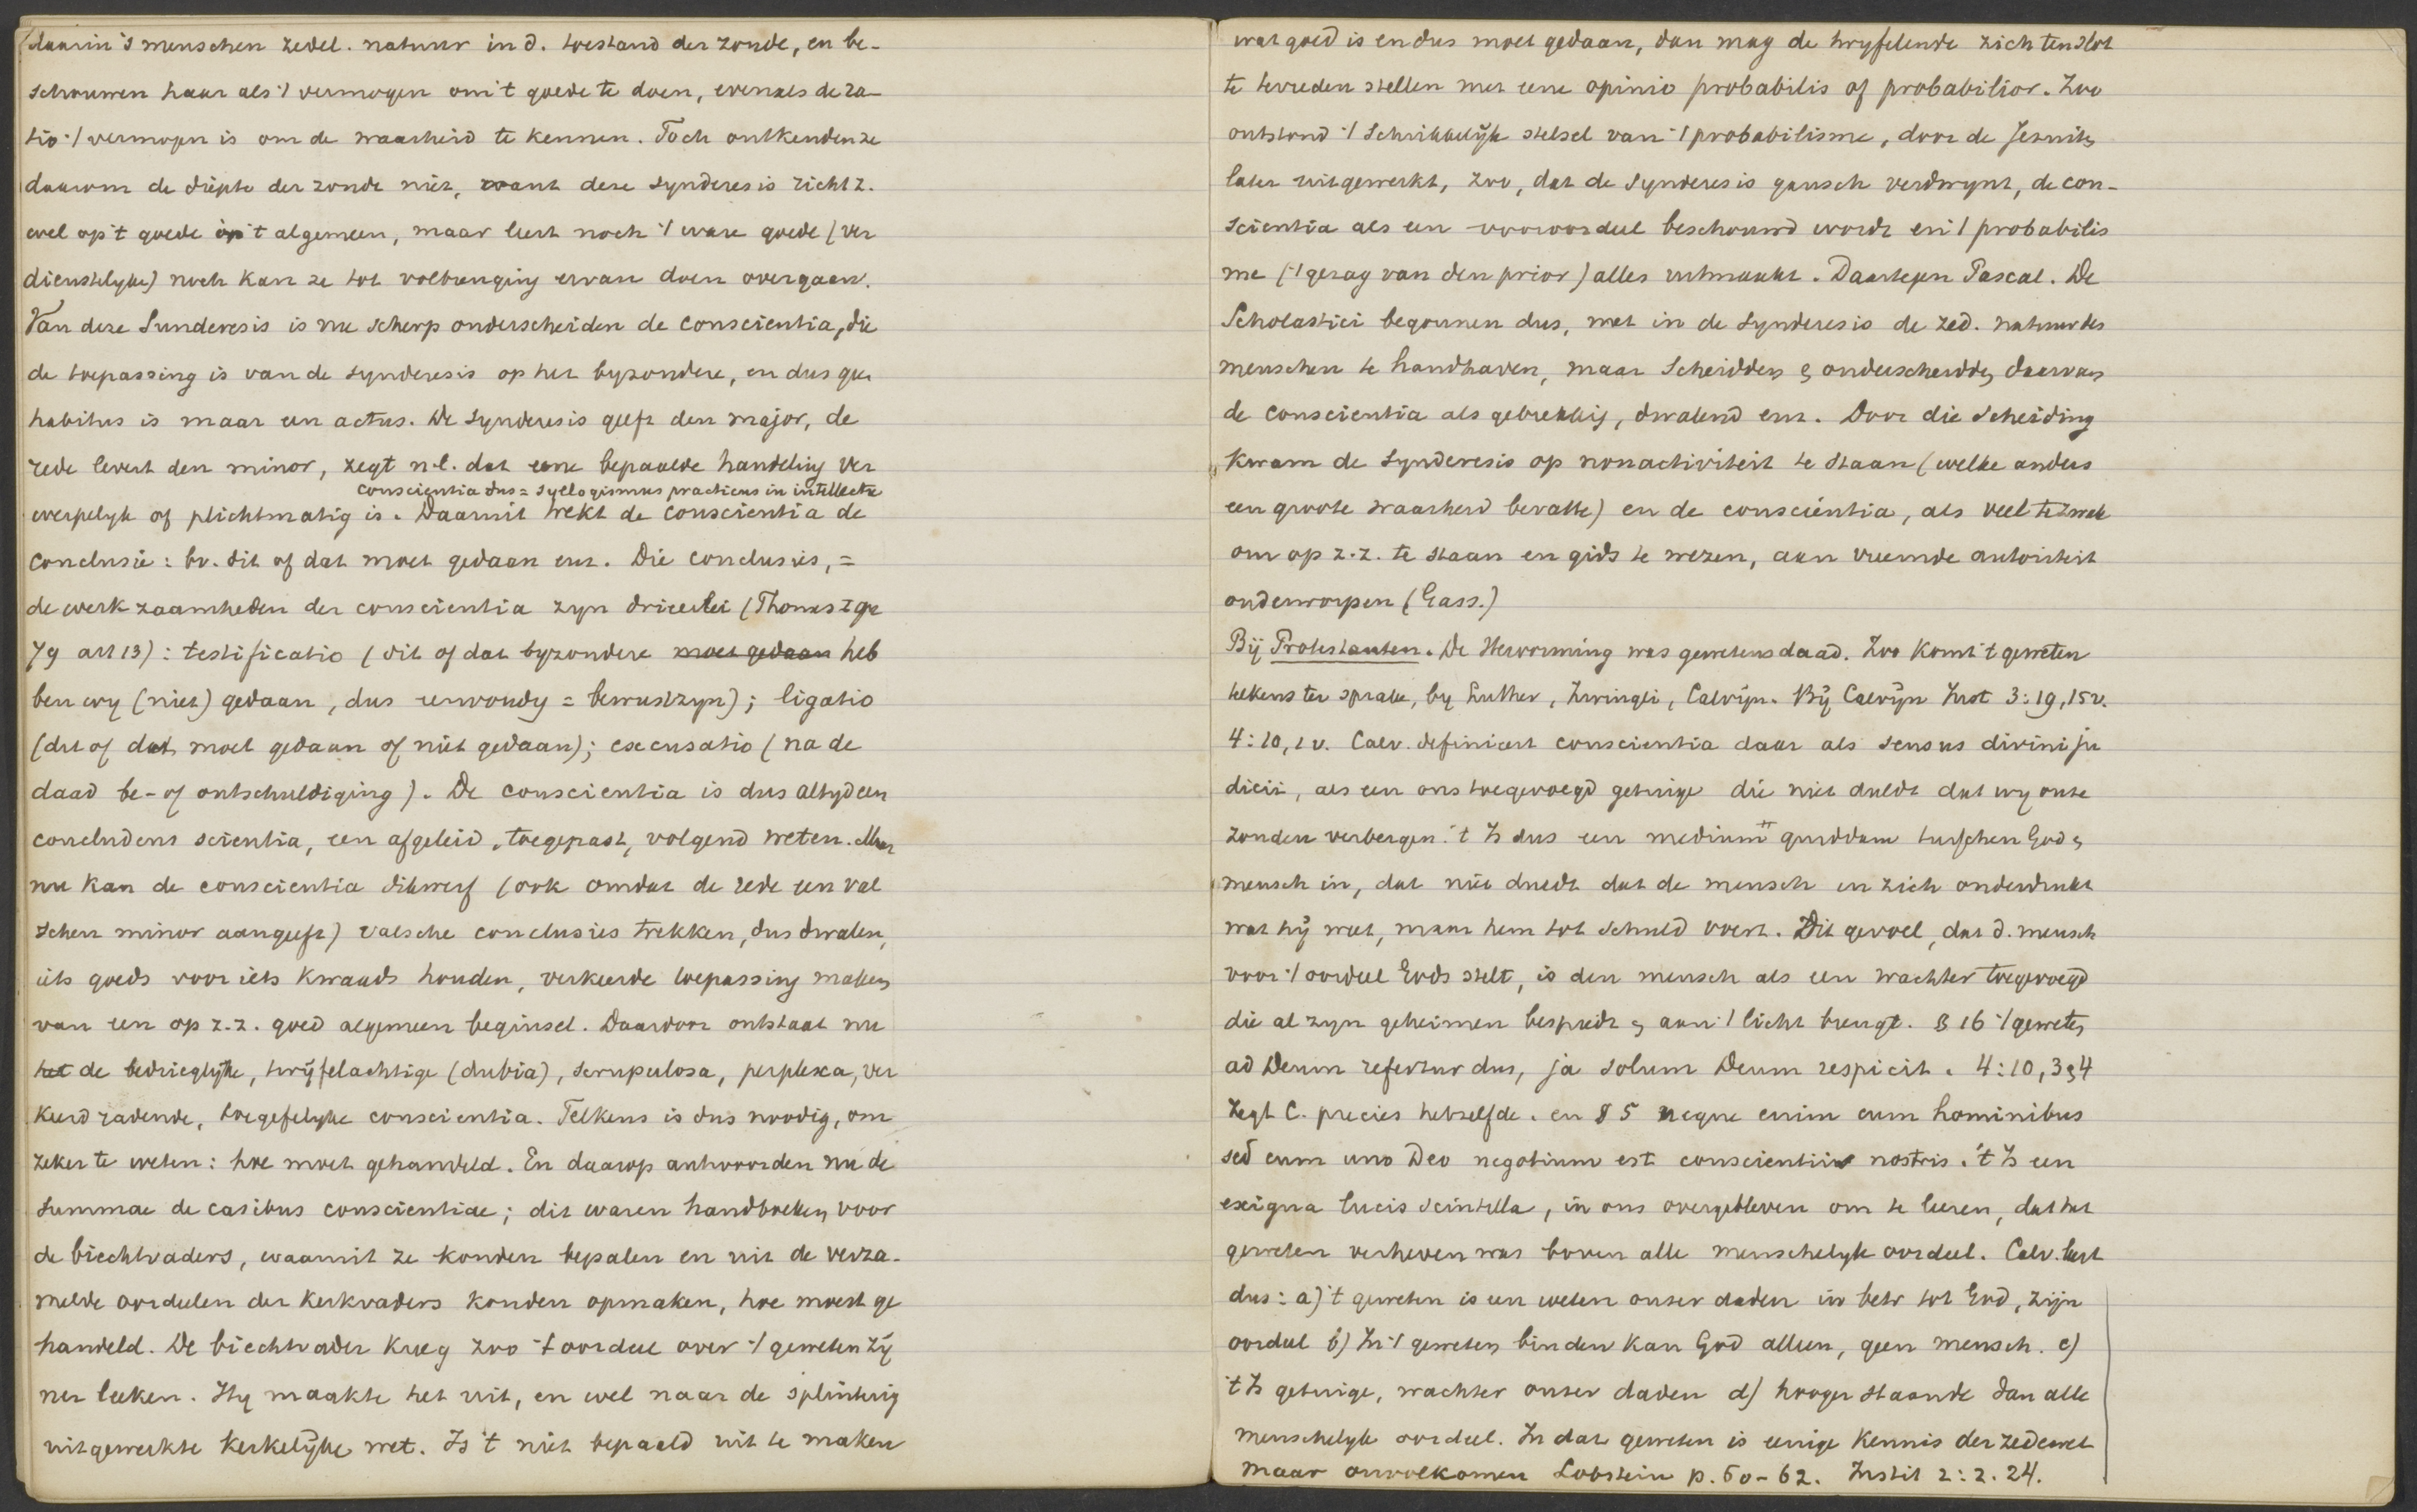 daarin 's menschen zedel. natuur in d. toestand der zonde, en be-
schouwen haar als 't vermogen om 't goede te doen, evenals de ra-
tio 't vermogen is om de waarheid te kennen. Toch ontkenden ze
daarom de diepte der zonde niet, want deze synderesis richt z.
wel op 't goede in 't algemeen, maar leert noch 't ware goede (ver
dienstelyke) noch kan ze tot volbrenging ervan doen overgaan.
Van deze Sunderesis is nu scherp onderscheiden de conscientia, die
de toepassing is van de synderesis op het byzondere, en dus geen
habitus is maar een actus. De synderesis geeft den major, de
rede levert den minor, zegt n.l. dat eene bepaalde handeling ver
conscientia dus = syllogismus practicus in intellectu
werpelyk of plichtmatig is. Daaruit trekt de conscientia de
conclusie: bv. dit of dat moet gedaan enz. Die conclusies, =
de werkzaamheden der conscientia zyn drieerlei (Thomas I qu
79 art 13): testificatio (dit of dat byzondere moet gedaan heb
ben wy (niet) gedaan, dus eenvoudig = bewustzyn); ligatio
(dit of dat moet gedaan of niet gedaan); excusatio (na de
daad be- of ontschuldiging). De conscientia is dus altyd een
concludens scientia, een afgeleid, toegepast, volgend weten. Maar
nu kan de conscientia dikwerf (ook omdat de rede een val
schen minor aangeeft) valsche conclusies trekken, dus dwalen,
iets goeds voor iets kwaads houden, verkeerde toepassing maken
van een op z.z. goed algemeen beginsel. Daardoor ontstaat nu
het de bedrieglyke, twijfelachtige (dubia), scrupulosa, perplexa, ver
keerd radende, toegefelyke conscientia. Telkens is dus noodig, om
zeker te weten: hoe moet gehandeld. En daarop antwoorden nu de
Summae de casibus conscientiae; dit waren handboeken voor
de biechtvaders, waaruit ze konden bepalen en uit de verza-
melde oordeelen der kerkvaders konden opmaken, hoe moest ge
handeld. De biechtvader kreeg zoo 't oordeel over 't geweten zij
ner leeken. Hy maakte het uit, en wel naar de splinterig
uitgewerkte kerkelijke wet. Is 't niet bepaald uit te maken
wat goed is en dus moet gedaan, dan mag de twyfelende zich ten slot
te tevreden stellen met eene opinio probabilis of probabilior. Zoo
ontstond 't schrikkelijk stelsel van 't probabilisme, door de Jesuiten
later uitgewerkt, zoo, dat de synderesis gansch verdwynt, de con-
scientia als een vooroordeel beschouwd wordt en 't probabilis
me ('t gezag van den prior) alles uitmaakt. Daartegen Pascal. De
Scholastici begonnen dus, met in de synderesis de zed. natuur des
menschen te handhaven, maar scheidden & onderscheidden daarvan
de conscientia als gebrekkig, dwalend enz. Door die scheiding
kwam de synderesis op nonactiviteit te staan (welke anders
een groote waarheid bevatte) en de conscientia, als veel te zwak
om op z.z. te staan en gids te wezen, aan vreemde autoriteit
onderworpen (Gass.)
Bij Protestanten. De Hervorming was gewetensdaad. Zoo komt 't geweten
telkens ter sprake, by Luther, Zwingli, Calvijn. Bij Calvijn Inst 3:19, 15 v.
4:10, 1 v. Calv. definieert conscientia daar als sensus divini ju
dicii, als een ons toegevoegd getuige die niet duldt dat wy onze
zonden verbergen. 't Is dus een medium quiddam tusschen God &
mensch in, dat niet duldt dat de mensch in zich onderdrukt
wat hij weet, maar hem tot schuld voert. Dit gevoel, dat d. mensch
voor 't oordeel Gods stelt, is den mensch als een wachter toegevoegd
die al zyn geheimen bespiedt & aan 't licht brengt. § 16 't geweten
ad Deum refertur dus, ja solum Deum respicit. 4:10, 3 & 4
zegt C. precies hetzelfde. en § 5 neque enim cum hominibus
sed cum uno Deo negotium est conscientiis nostris. 't Is een
exigua lucis scintilla, in ons overgebleven om te leeren, dat het
geweten verheven was boven alle menschelyk oordeel. Calv. leert
dus: a) 't geweten is een weten onzer daden in betr tot God, zijn
oordeel b) In 't geweten binden kan God alleen, geen mensch. c)
't Is getuige, wachter onzer daden d) hooger staande dan alle
menschelyk oordeel. In dat geweten is eenige kennis der zedewet
maar onvolkomen Lobstein p. 60-62. Instit 2:2. 24.